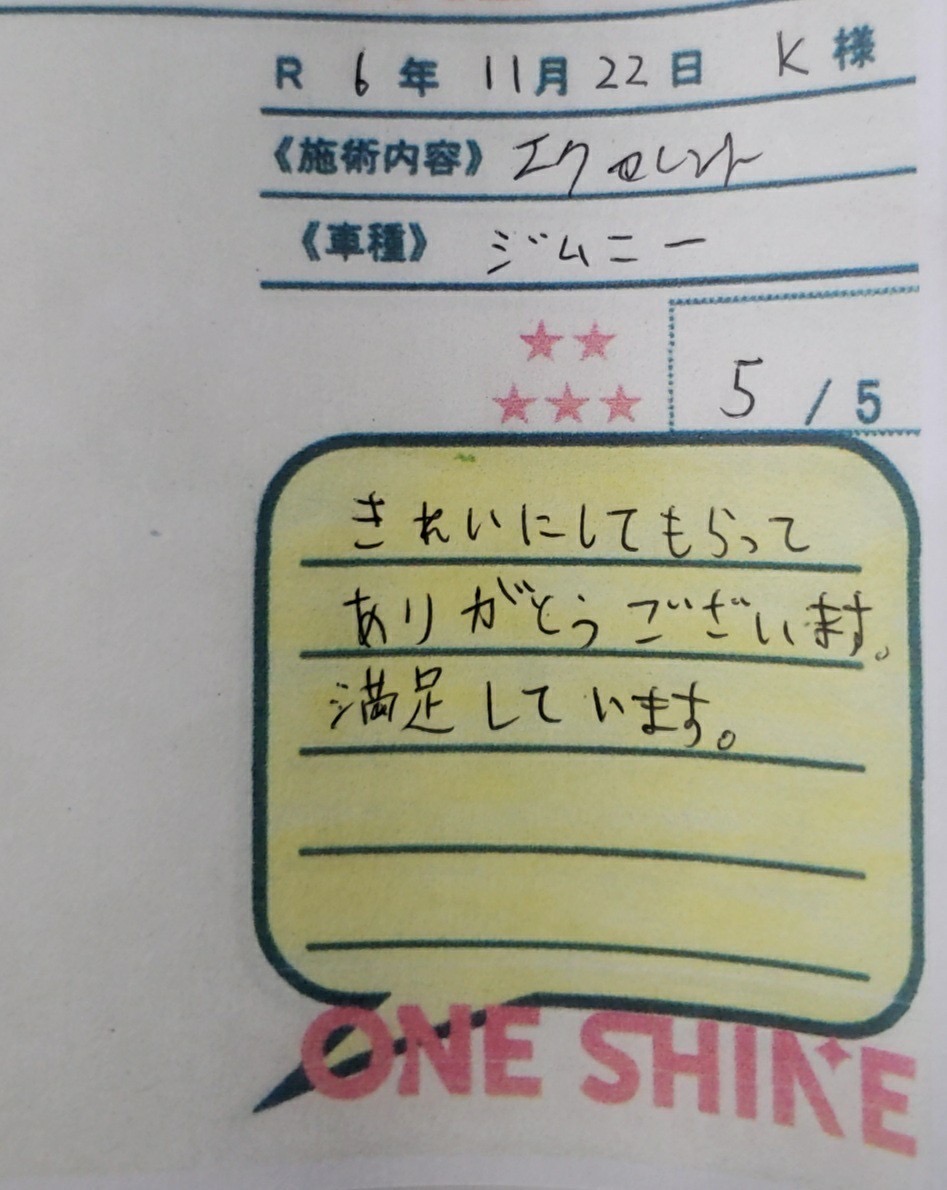 R 6 年 11月 22 日 K 様
《施術内容》 エクセレント
《車種》 ジムニー
★★
★★★
5 / 5
きれいにしてもらって
ありがとうございます。
満足しています。
ONE SHINE